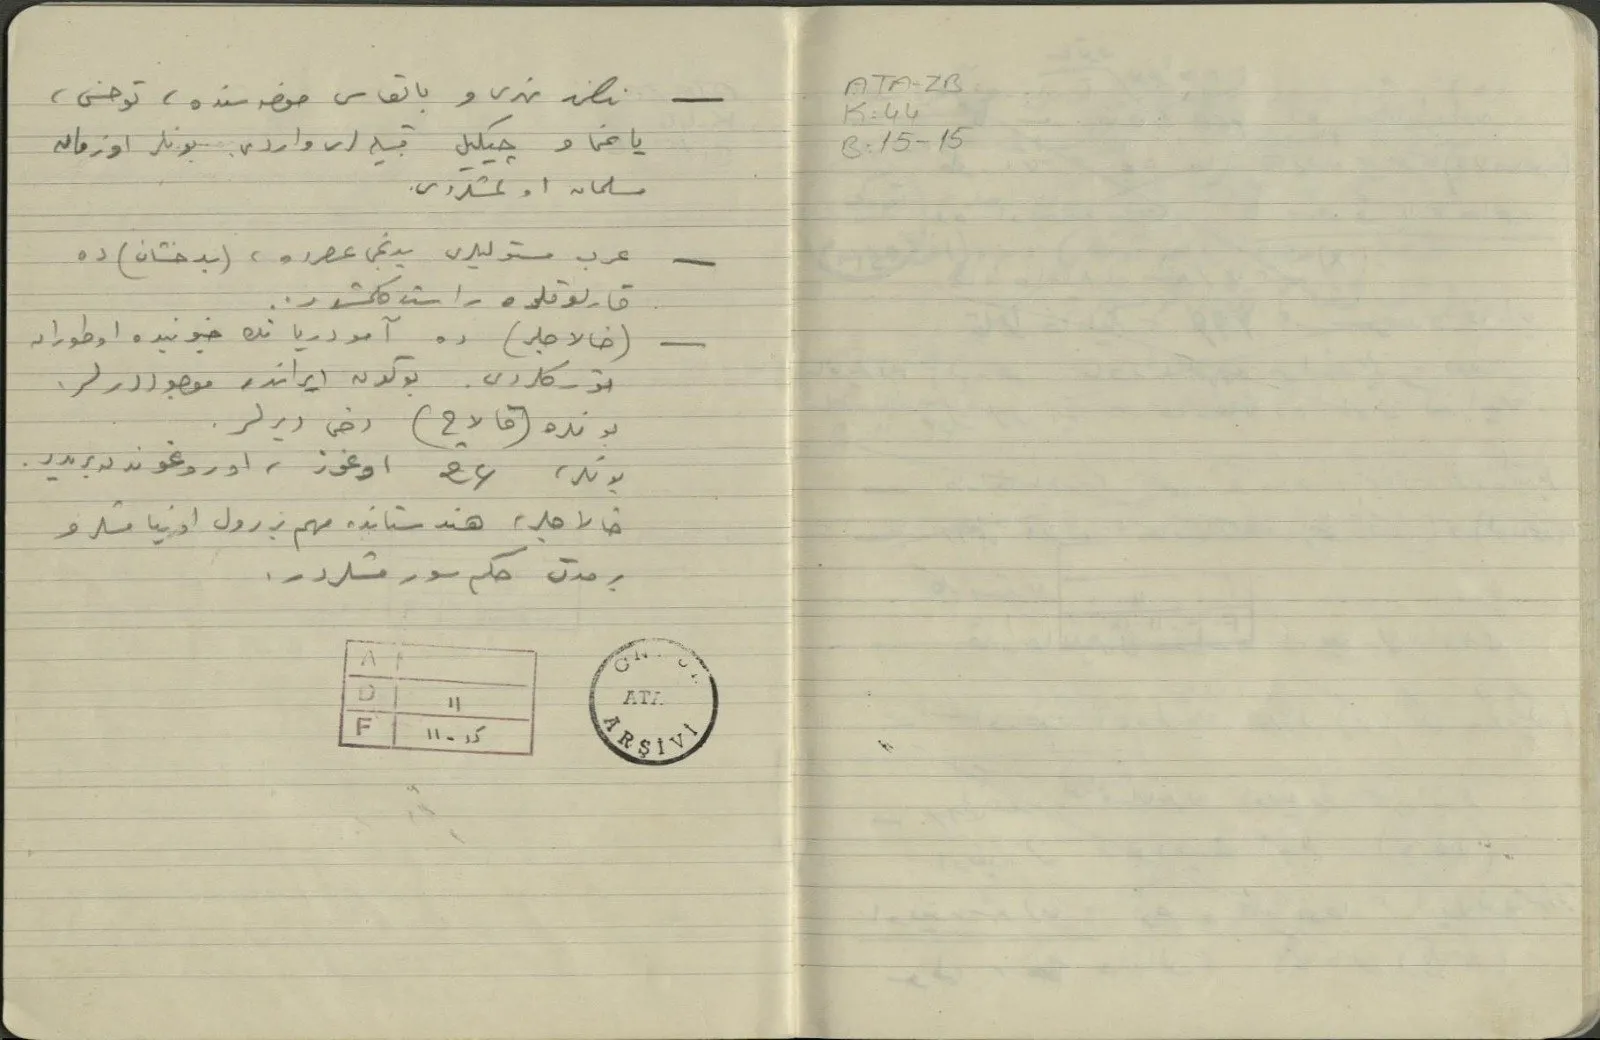 — نهری و بالقاش حوضه سنده ، توخسی ،
یاغما و چیكیل قبیله لری واردی. بونلر اوزمان
مسلمان اولمشلردی.
— عرب مستولیلری یدنجی عصرده ، (بدخشان) ده
قارلوقلره راست كلمشلردر.
— (خالاجلر) ده آمودریانك جنوبنده اوطوران
تورکلردی. بوكون ایرانده موجوددرلر.
بونلره (قالاچ) دخی دیرلر.
بونلر ، ۲۴ اوغوز ، اوروغوندن بریدر.
خالاجلر ، هندستانده مهم بر رول اوینامشلر و
بر مدت حكم سورمشلردر.
A
D ۱۱
F ۱۱-۱۵
ATA
ARŞİVİ
ATA-ZB
K:44
B:15-15